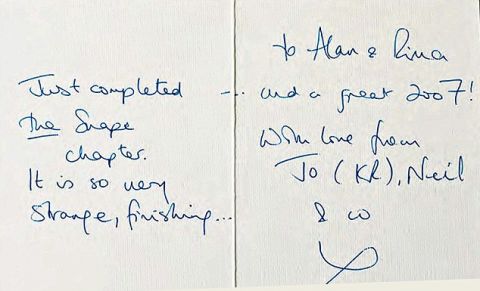 Just completed
the Snape
chapter.
It is so very
strange, finishing...
to Alan & Rima
--. and a great 2007!
With love from
Jo (KR), Neil
& co